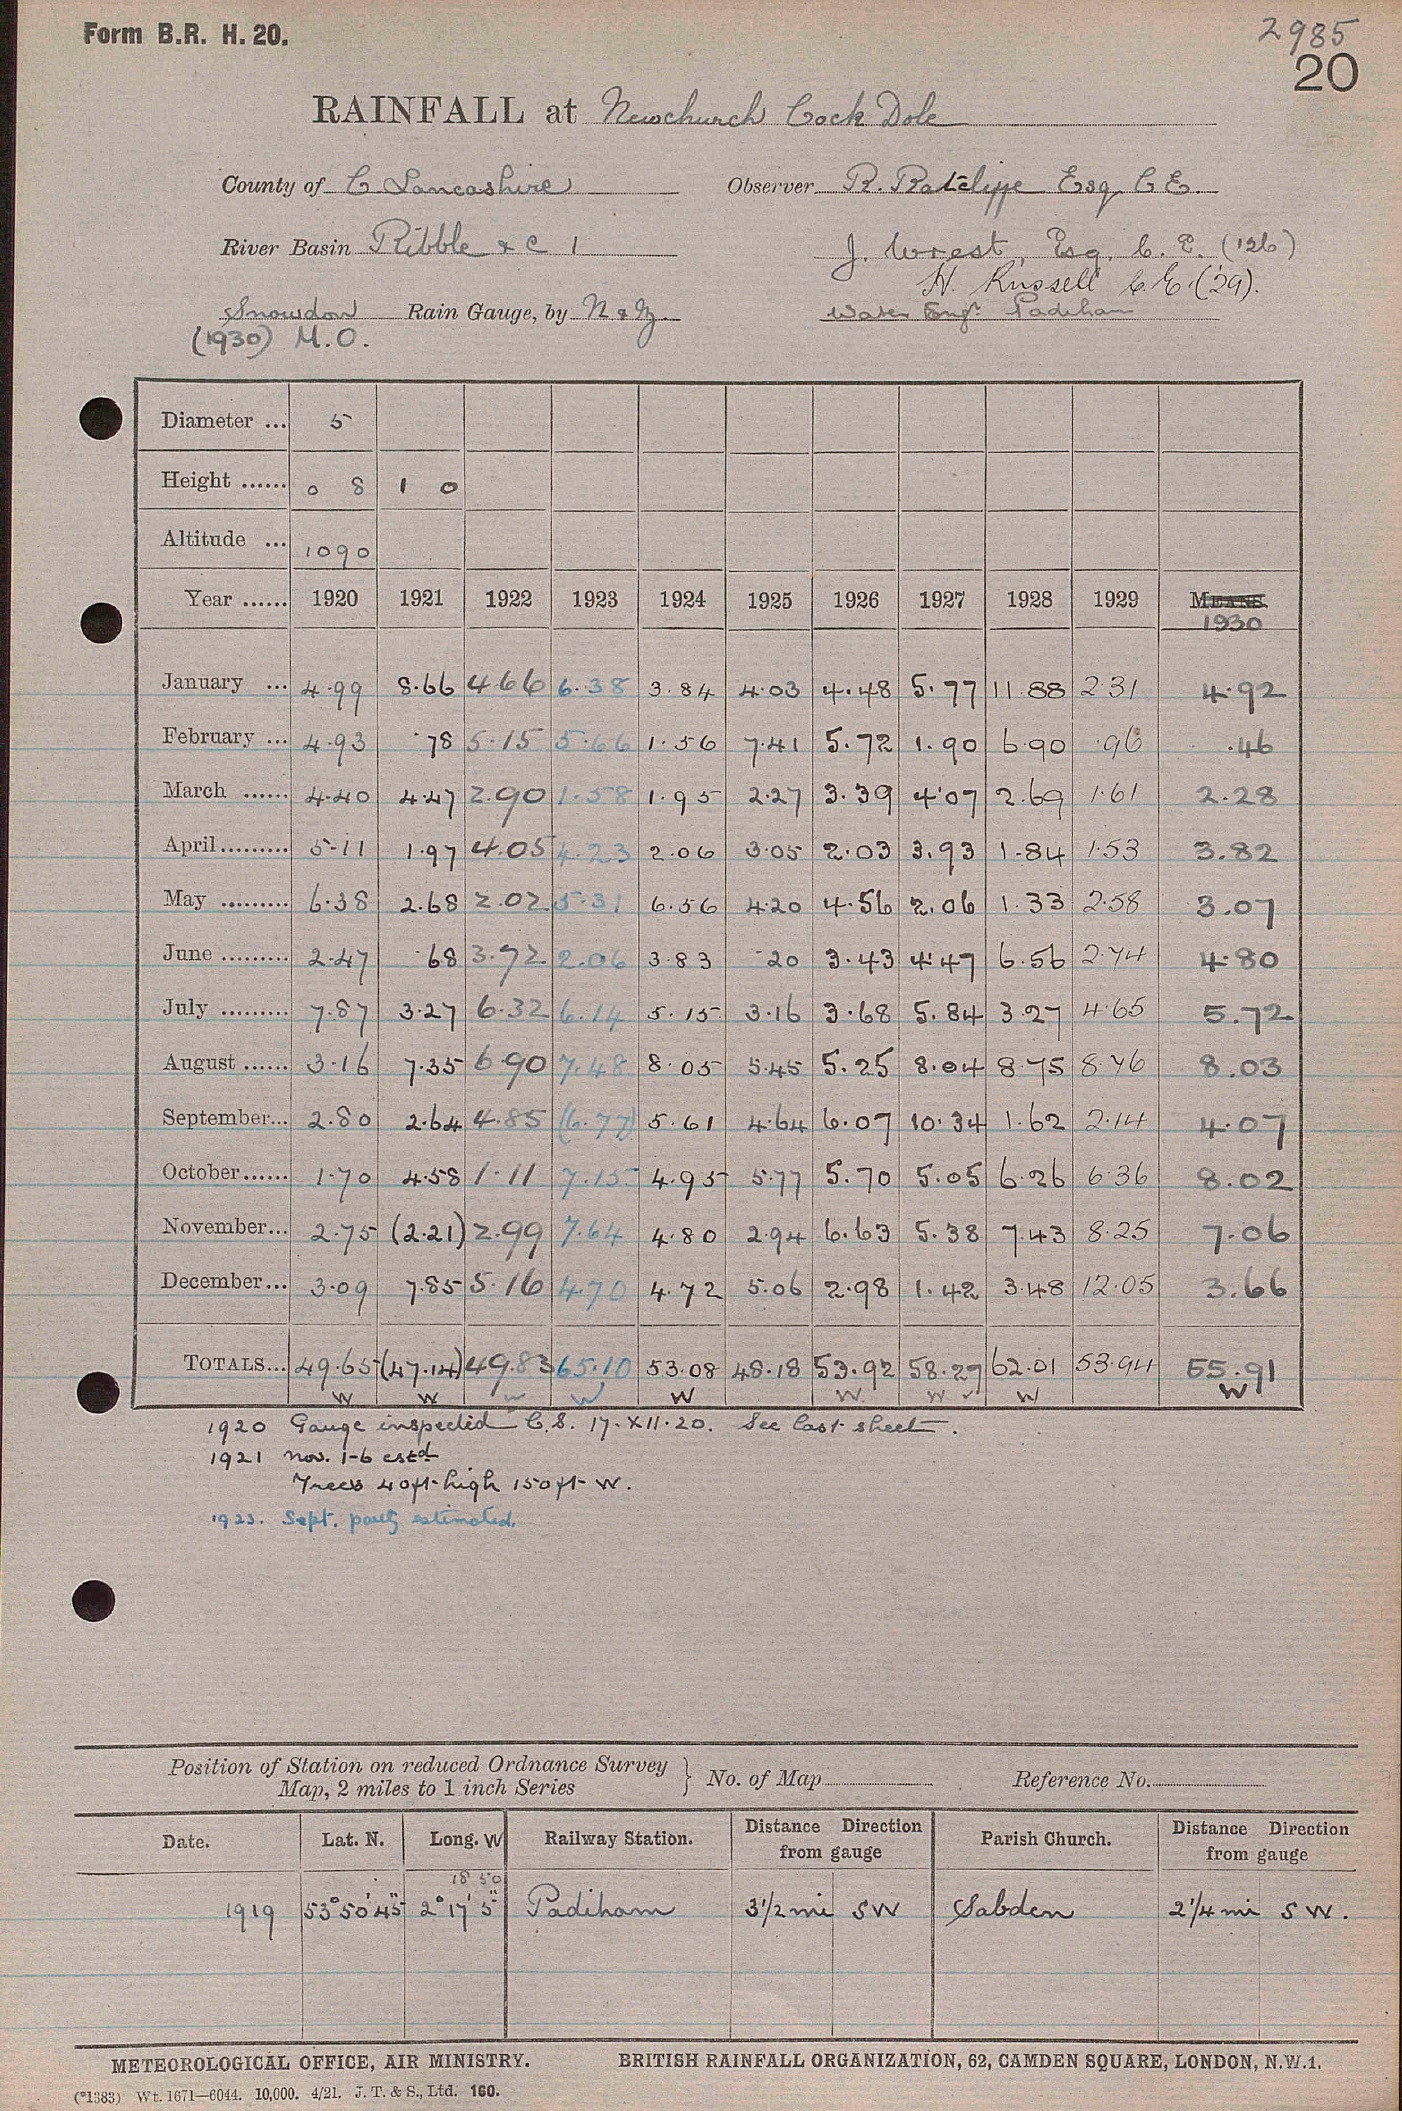 Form B.R. H. 20.
2985
20
RAINFALL at Newchurch Cock Dole
County of C Lancashire Observer R. Ratcliffe Esq C E.
River Basin Ribble & C 1 J. Wrest, Esq. C. E. ('26)
H. Russell C. E. ('29).
Snowdon Rain Gauge, by N & Z. Water Engr. Padiham
(1930) M.O.
Diameter ... 5
Height ...... 0 8 1 0
Altitude ... 1090
Year ...... 1920 1921 1922 1923 1924 1925 1926 1927 1928 1929 MEANS
1930
January ... 4.99 8.66 4.66 6.38 3.84 4.03 4.48 5.77 11.88 2.31 4.92
February ... 4.93 .78 5.15 5.66 1.56 7.41 5.72 1.90 6.90 .96 .46
March ...... 4.40 4.47 2.90 1.58 1.95 2.27 3.39 4.07 2.69 1.61 2.28
April ......... 5.11 1.97 4.05 4.23 2.06 3.05 2.03 3.93 1.84 1.53 3.82
May ......... 6.38 2.68 2.02 5.31 6.56 4.20 4.56 2.06 1.33 2.58 3.07
June ......... 2.47 .68 3.72 2.06 3.83 .20 3.43 4.47 6.56 2.74 4.80
July ......... 7.87 3.27 6.32 6.14 5.15 3.16 3.68 5.84 3.27 4.65 5.72
August ...... 3.16 7.35 6.90 7.48 8.05 5.45 5.25 8.04 8.75 8.76 8.03
September... 2.80 2.64 4.85 (6.77) 5.61 4.64 6.07 10.34 1.62 2.14 4.07
October ...... 1.70 4.58 1.11 7.15 4.95 5.77 5.70 5.05 6.26 6.36 8.02
November... 2.75 (2.21) 2.99 7.64 4.80 2.94 6.63 5.38 7.43 8.25 7.06
December... 3.09 7.85 5.16 4.70 4.72 5.06 2.98 1.42 3.48 12.05 3.66
TOTALS... 49.65 (47.14) 49.83 65.10 53.08 48.18 53.92 58.27 62.01 53.94 55.91
W W W W W W W ✓ W W
1920 Gauge inspected C.S. 17.XII.20. See last sheet.
1921 Nov. 1-6 estd
Trees 40ft high 150ft W.
1923. Sept. partly estimated.
Position of Station on reduced Ordnance Survey
Map, 2 miles to 1 inch Series } No. of Map Reference No.
Date. Lat. N. Long. W Railway Station. Distance Direction from gauge Parish Church. Distance Direction from gauge
18 50
1919 53° 50' 45" 2° 17' 5" Padiham 3 1/2 mi SW Sabden 2 1/4 mi S W.
METEOROLOGICAL OFFICE, AIR MINISTRY. BRITISH RAINFALL ORGANIZATION, 62, CAMDEN SQUARE, LONDON, N.W.1.
(*1383) Wt. 1671—6044. 10,000. 4/21. J. T. & S., Ltd. 160.